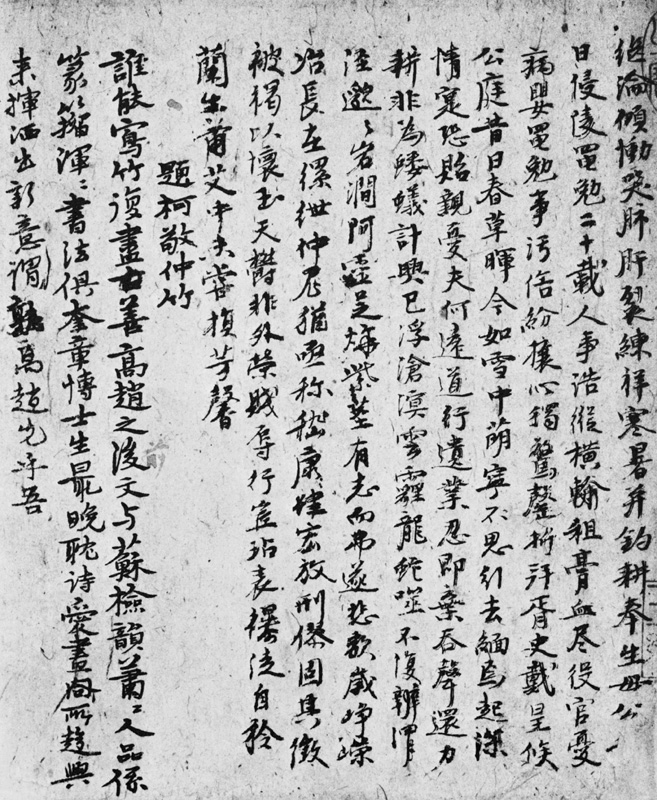 繼淪傾慟哭肺肝裂練祥寒暑并釣耕奉生母公
日侵陵黽勉二十載人事浩縱橫輸租膏血尽役官憂
病嬰黽勉事污俗紛攘心獨驚罄折拜胥史戴星候
公庭昔日春草暉今如雪中萌寧不思引去緬焉起深
情寔恐貽親憂夫何遠道行遺業忍即棄吞聲還力
耕非為螻蟻計興已浮滄溟雲霾龍蛇噬不復辨渭
涇邈〻岩澗阿靈芝燁紫莖有志而弗遂悲歌歲崢嶸
冶長在縲紲仲尼猶亟称嵇康肆宏放刑僇固其徵
被褐以懷玉天爵非外榮賤辱行豈玷表襮徒自矜
蘭生蕭艾中未嘗損芳馨
題柯敬仲竹
誰能寫竹復盡善高趙之後文与蘇檢韻蕭〻人品係
篆籀渾〻書法俱奎章博士生最晚耽诗愛畫同所趨興
来揮洒出新意孰謂高趙先乎吾